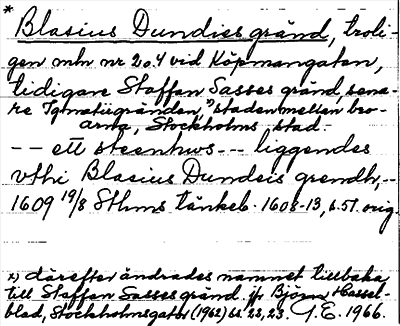 * Blasius Dundies gränd, troli-
gen mln nr 2 o. 4 vid Köpmangatan,
tidigare Staffan Sasses gränd, sena-
re Ignatiigränden, x) staden mellan bro-
arna, Stockholms stad. -
-- ett steenhws --- liggendes
vthi Blasius Dundeis grendh,--
1609 19/8 Sthms tänkeb. 1608-13, s. 57. orig.
x) därefter ändrades namnet tillbaka
till Staffan Sasses gränd. jfr Björn Hassel-
blad, Stockholmsgator (1962) ss. 22, 23. G.E. 1966.